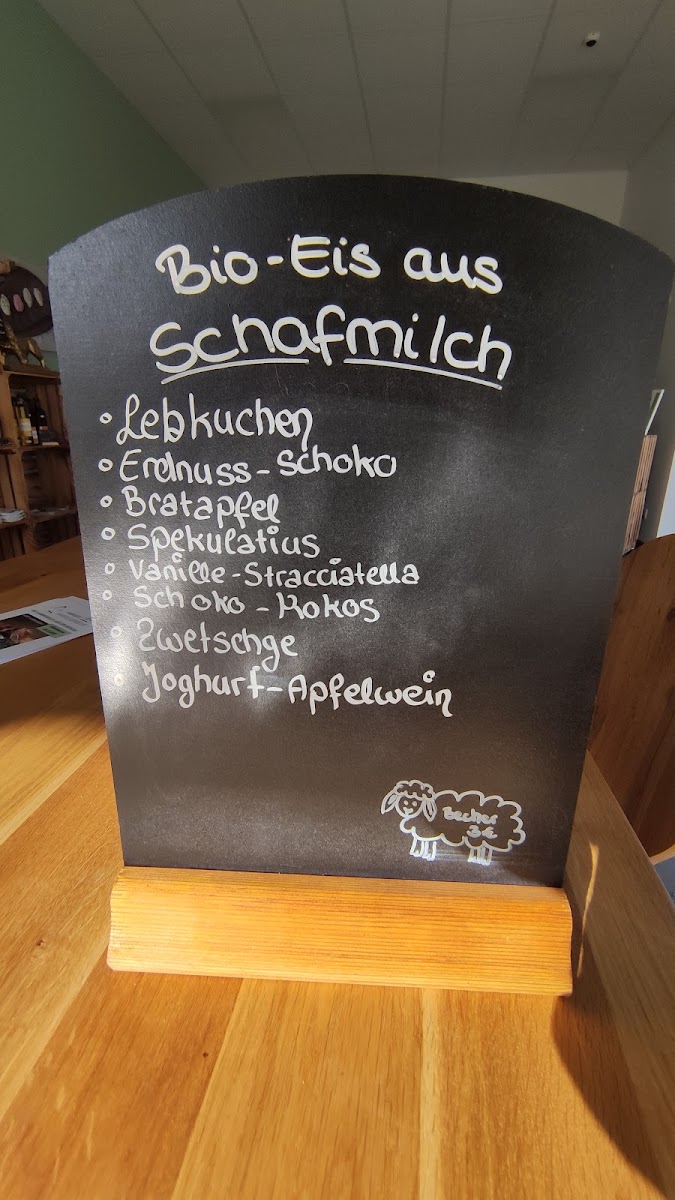 Bio-Eis aus
Schafmilch
Lebkuchen
Erdnuss-Schoko
Bratapfel
Spekulatius
Vanille-Stracciatella
Schoko-Kokos
Zwetschge
Joghurt-Apfelwein
Becher
3€